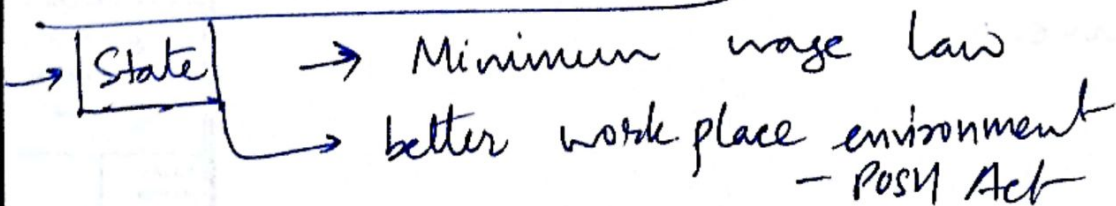 → State → Minimum wage law
→ better work place environment
- POSH Act